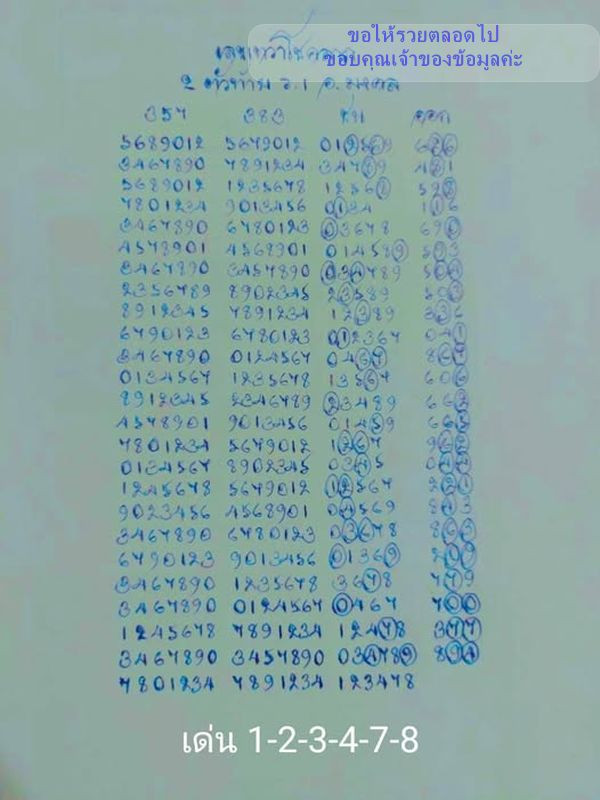 ขอให้รวยตลอดไป
ขอบคุณเจ้าของข้อมูลค่ะ
2 ตัวท้าย
357 383 ชน ออก
5689012 5679012 012569 6
3467890 7891234 34789 1
5689012 1235678 12562 522
7801234 9013456 0134 116
3467890 6780123 03678 690
4578901 4568901 014589 503
3467890 3457890 034789 504
2356789 8902345 23589 503
8912345 7891234 12389 336
6790123 6780123 012367 041
3467890 0124567 0467 867
0134567 1235678 13567 606
8912345 2346789 23489 662
4578901 9013456 01459 665
7801234 5679012 1267 962
0134567 8902345 0345 044
1245678 5679012 12567 221
9023456 4568901 04569 813
3467890 6780123 03678 863
6790123 9013456 01369 209
3467890 1235678 3678 779
3467890 0124567 0467 700
1245678 7891234 12478 377
3467890 3457890 034789 894
7801234 7891234 123478
เด่น 1-2-3-4-7-8